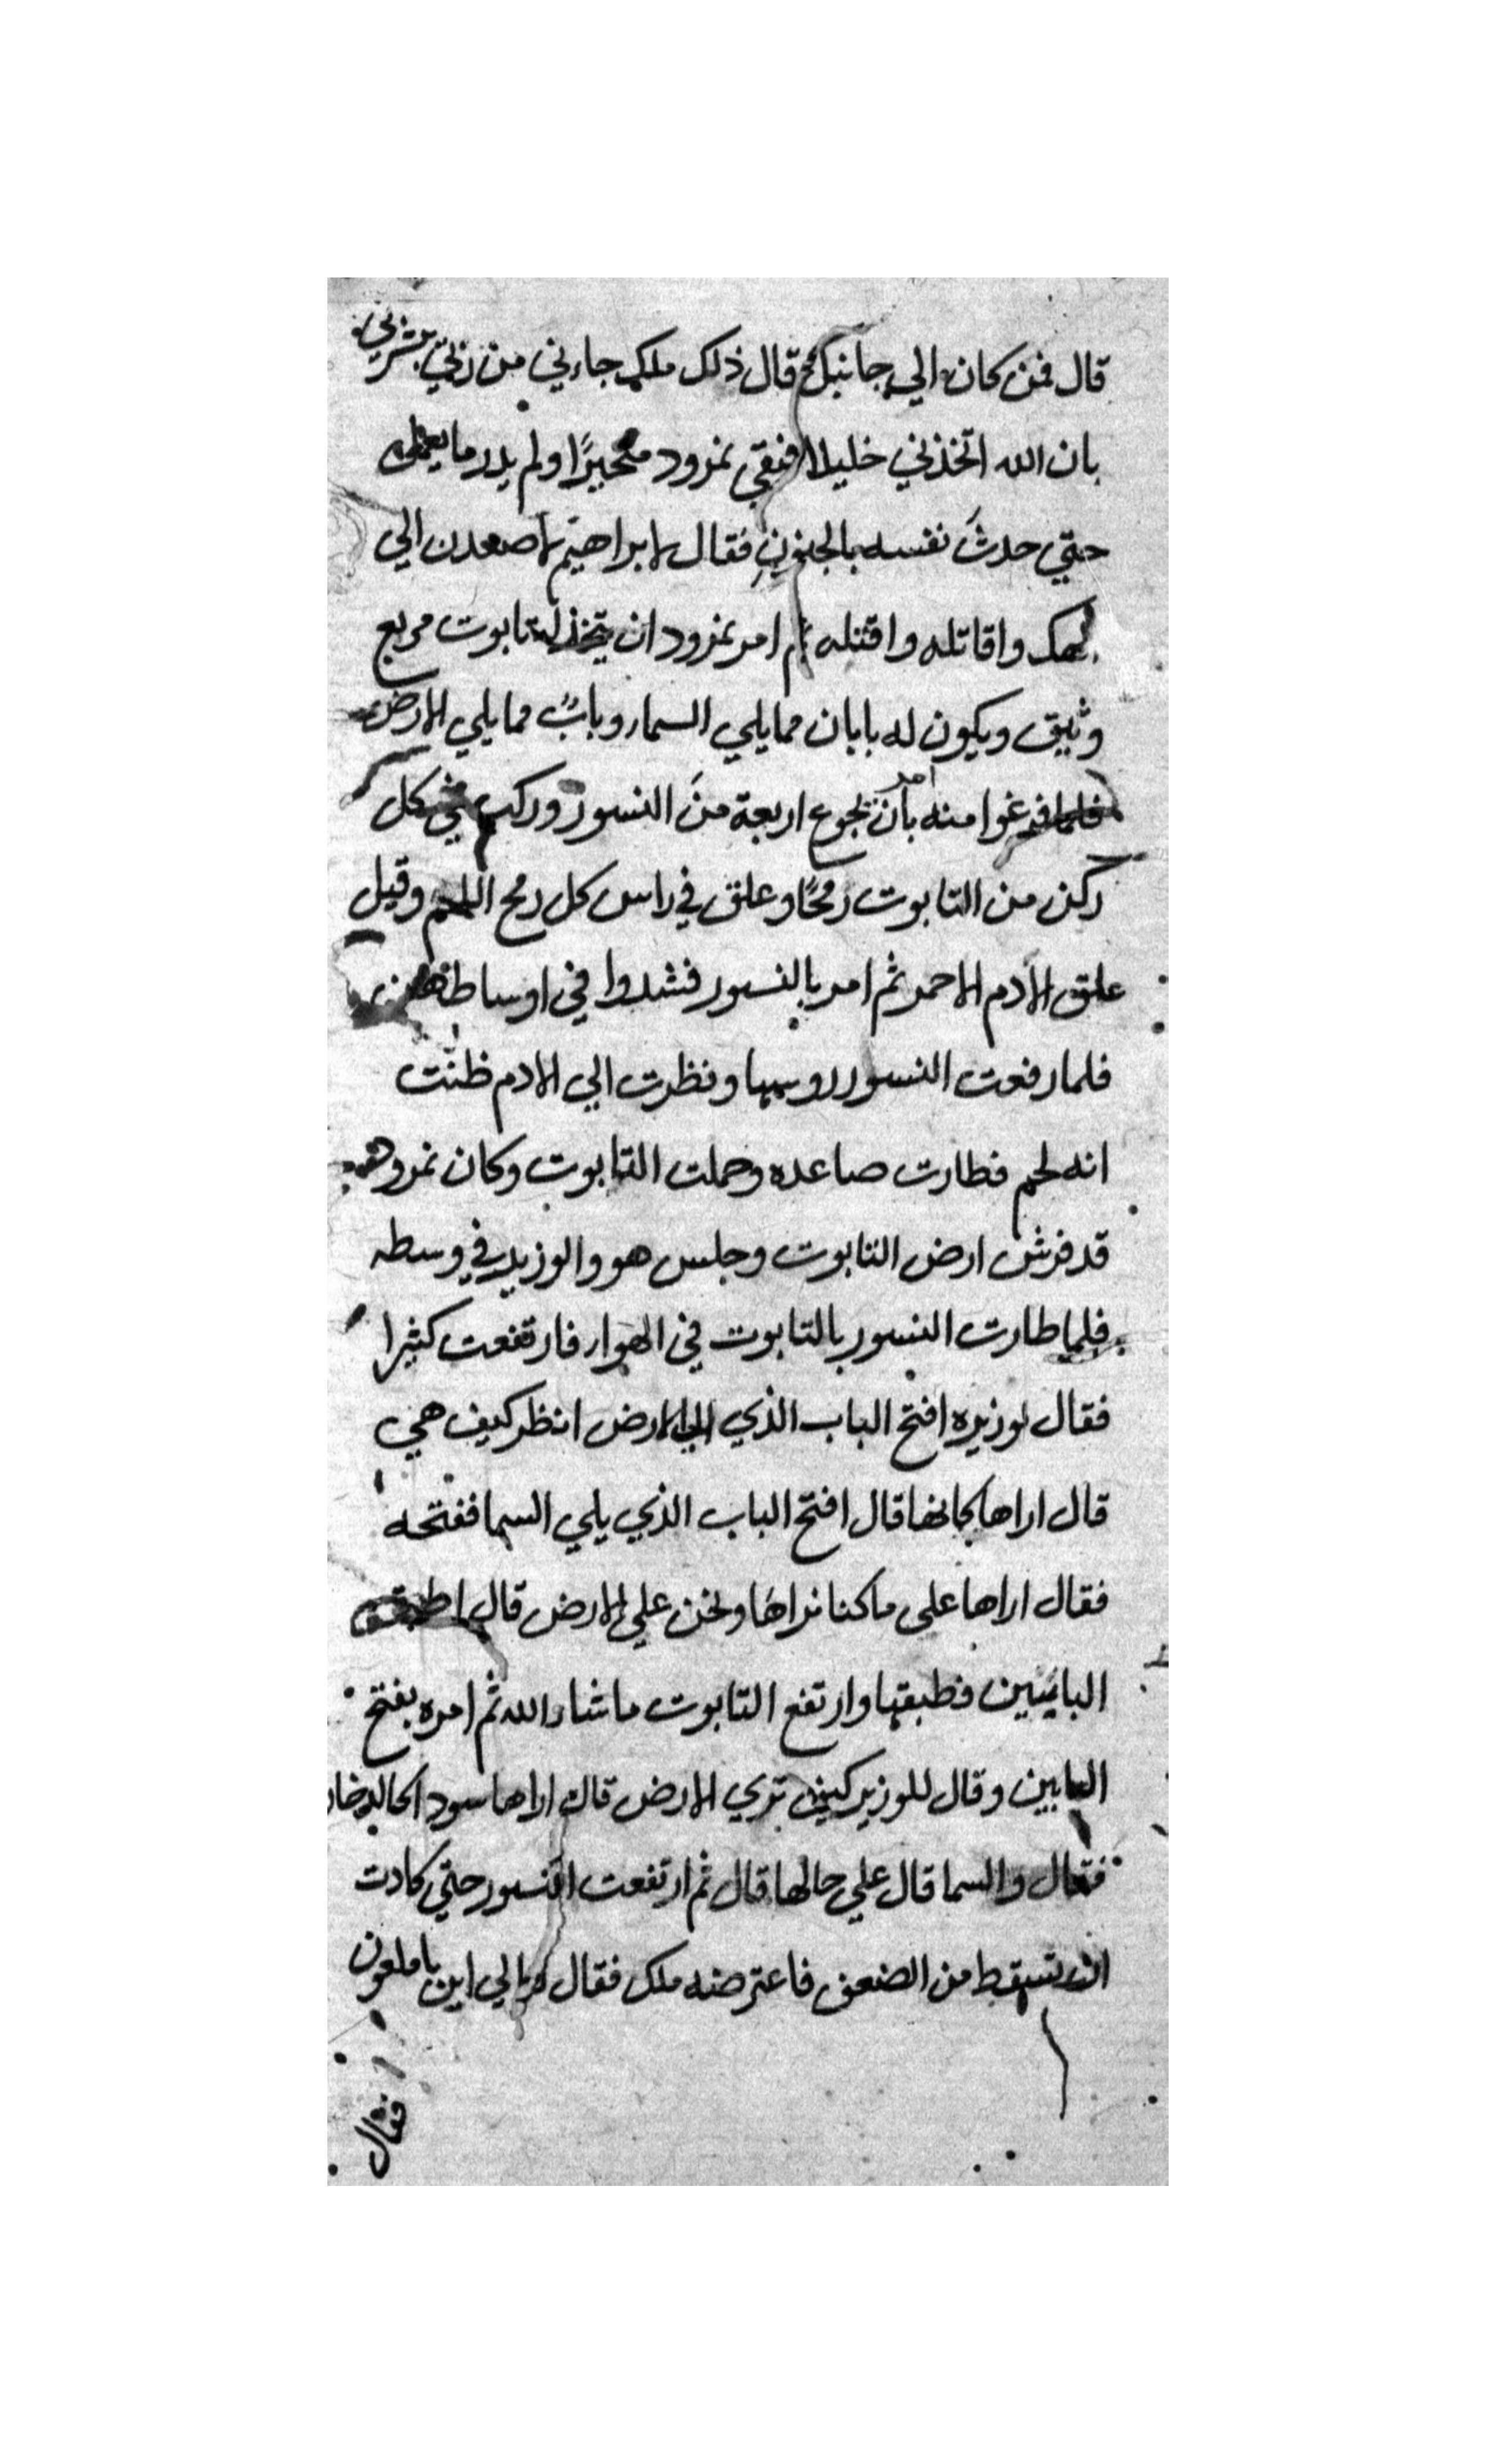 قال فمن كان الي جانبك قال ذلك ملك جاءني من ربي بشرني
بان الله اتخذني خليلا فبقي نمرود متحيرًا ولم يدر ما يعمل
حتي حدثَ نفسه بالجنون فقال لابراهيم لاصعدن الي
الهك واقاتله واقتله ثم امر نمرود ان يتخذ له تابوت مربع
وثيق ويكون له بابان مما يلي السماء وبابٌ مما يلي الارض
فلما فرغوا منه امر بان تجوع اربعة منَ النسور وركب في كل
ركن من التابوت رمحًا وعلق في راس كل رمح اللحم وقيل
علق الادم الاحمر ثم امر بالنسور فشدوا في اوساطهن
فلما رفعت النسور روسها ونظرت الي الادم ظنّت
انه لحم فطارت صاعده وحملت التابوت وكان نمرود
قد فرش ارض التابوت وجلس هو والوزير في وسطه
فلما طارت النسور بالتابوت في الهواء فارتفعت كثيرا
فقال لوزيره افتح الباب الذي الي الارض انظر كيف هي
قال اراها كانها قال افتح الباب الذي يلي السما ففتحه
فقال اراها على ما كنا نراها ونحن علي الارض قال اطبق
البابين فطبقها وارتفع التابوت ما شاء الله ثم امره بفتح
البابين وقال للوزير كيف تري الارض قال اراها سود
فقال والسما قال علي حالها قال ثم ارتفعت النسور حتي كادت
ان تسقط من الضعف فاعترضه ملك فقال له الي اين يا ملعون
فقال